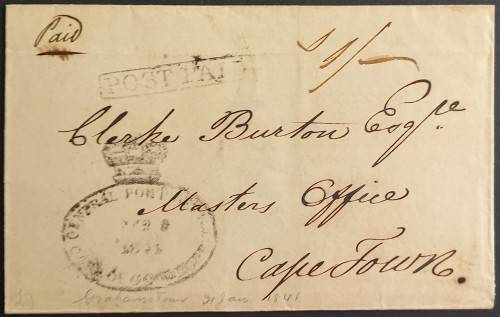 Paid
POST PAI
1/-
Clerke Burton Esqre
Masters Office
Cape Town.
GENERAL POST
Grahamstown 31 Jan 1841